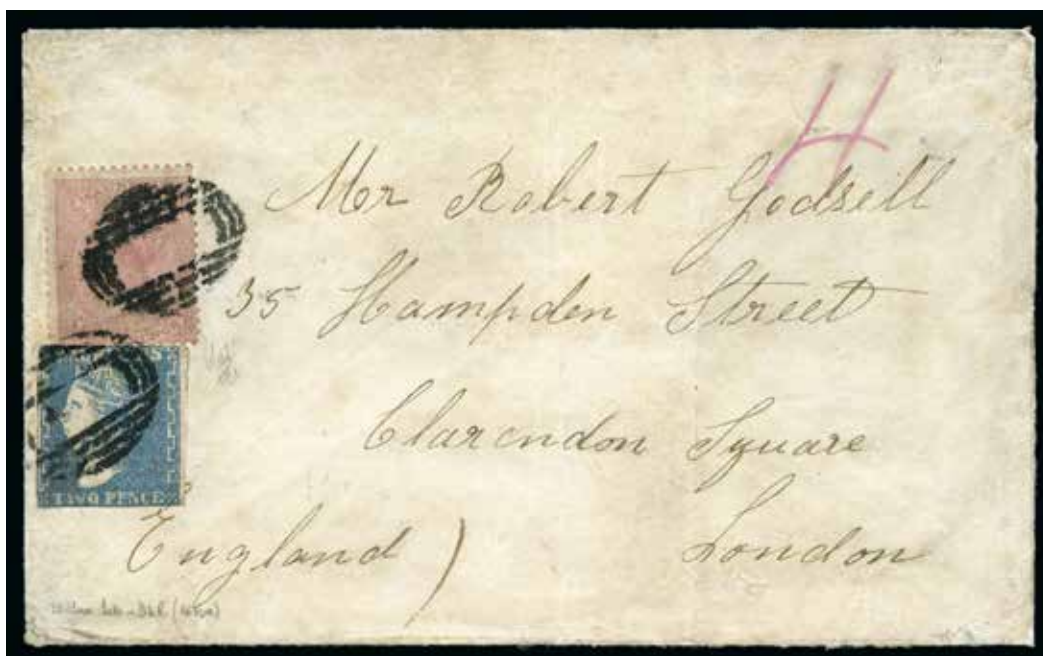 H
Mr Robert Godsell
35 Hampden Street
Clarendon Square
London
England )
TWO PENCE